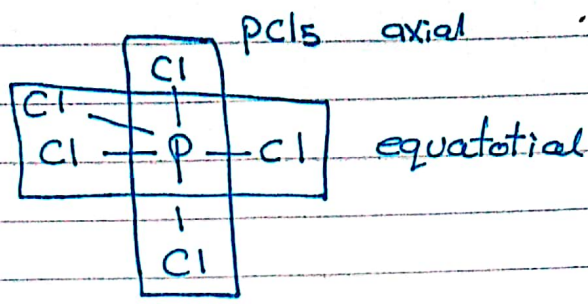 PCl5 axial
Cl
Cl
Cl — P — Cl equatotial
Cl